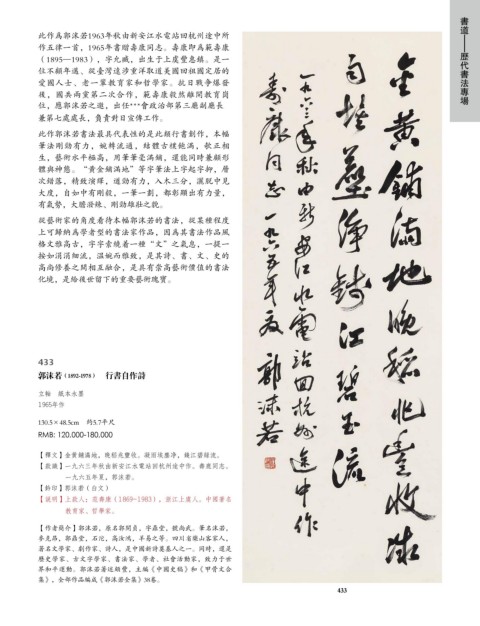 書道——歷代書法專場
此作為郭沫若1963年秋由新安江水電站回杭州途中所
作五律一首，1965年書贈壽康同志。壽康即為範壽康
（1895—1983），字允臧，出生于上虞豐惠鎮。是一
位不顧年邁、從臺灣遠涉重洋取道美國回祖國定居的
愛國人士、老一輩教育家和哲學家。抗日戰爭爆發
後，國共兩黨第二次合作，範壽康毅然離開教育崗
位，應郭沫若之邀，出任***會政治部第三廳副廳長
兼第七處處長，負責對日宣傳工作。
此作郭沫若書法最具代表性的是此類行書創作，本幅
筆法剛勁有力，婉轉流通，結體古樸飽滿，欹正相
生，藝術水平極高，用筆筆毫滿鋪，還能同時兼顧形
體與神態。“黃金鋪滿地”等字筆法上字起字抑，層
次錯落，精致演繹，遒勁有力，入木三分，灑脫中見
大度，自如中有剛毅，一筆一劃，都彰顯出有力量，
有氣勢，大膽潑綠、剛勁雄壯之貌。
從藝術家的角度看待本幅郭沫若的書法，從某種程度
上可歸納為學者型的書法家作品，因為其書法作品風
格文雅高古，字字索繞着一種“文”之氣息，一提一
按如涓涓細流，溫婉而雅致，是其詩、書、文、史的
高尚修養之間相互融合，是具有當高藝術價值的書法
化境，是給後世留下的重要藝術瑰寶。
433
郭沫若（1892-1978） 行書自作詩
立軸 紙本水墨
1965年作
130.5×48.5cm 約5.7平尺
RMB: 120,000-180,000
【釋文】金黃鋪滿地，晚稻兆豐收。凝固埃塵凈，錢江碧綠流。
【款識】一九六三年秋由新安江水電站回杭州途中作。壽康同志。
一九六五年夏，郭沫若。
【鈐印】郭沫若（白文）
【說明】上款人：範壽康（1869—1983），浙江上虞人。中國著名
教育家、哲學家。
【作者簡介】郭沫若，原名郭開貞，字鼎堂，號尚武。筆名沫若，
麥克昂，郭鼎堂，石沱，高汝鴻，羊易之等。四川省樂山客家人，
著名文學家、劇作家、詩人，是中國新詩奠基人之一。同時，還是
歷史學家、古文字學家、書法家、學者、社會活動家，致力于世
界和平運動。郭沫若著述頗豐，主編《中國史稿》和《甲骨文合
集》，全部作品編成《郭沫若全集》38卷。
金黃鋪滿地晚稻兆豐收凝
固埃塵淨錢江碧玉流
一九六三年秋由新安江水電站回杭州途中作
壽康同志 一九六五年夏 郭沫若
433